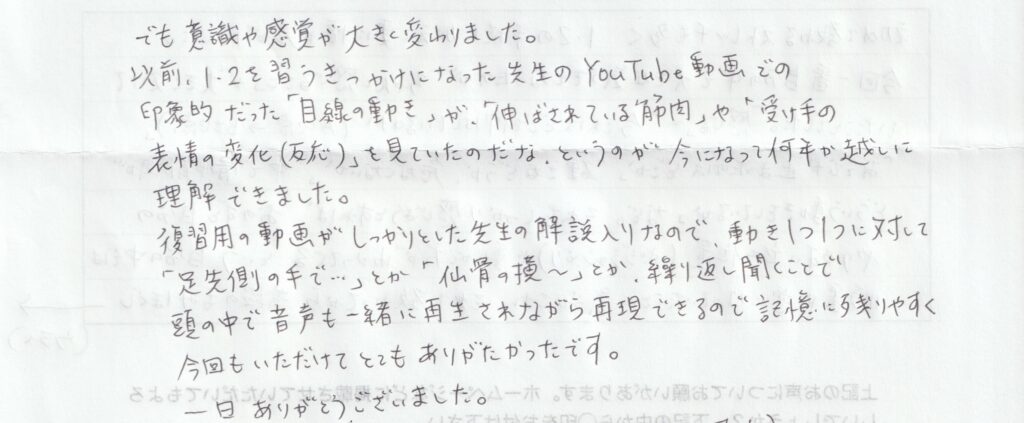 でも意識や感覚が大きく変わりました。
以前、1・2を習うきっかけになった先生のYouTube動画での
印象的だった「目線の動き」が、「伸ばされている筋肉」や「受け手の
表情の変化(反応)」を見ていたのだな、というのが今になって何年か越しに
理解できました。
復習用の動画がしっかりとした先生の解説入りなので、動き1つ1つに対して
「足先側の手で…」とか「仙骨の横〜」とか、繰り返し聞くことで
頭の中で音声も一緒に再生されながら再現できるので記憶にも残りやすく
今回もいただけてとてもありがたかったです。
一日ありがとうございました。